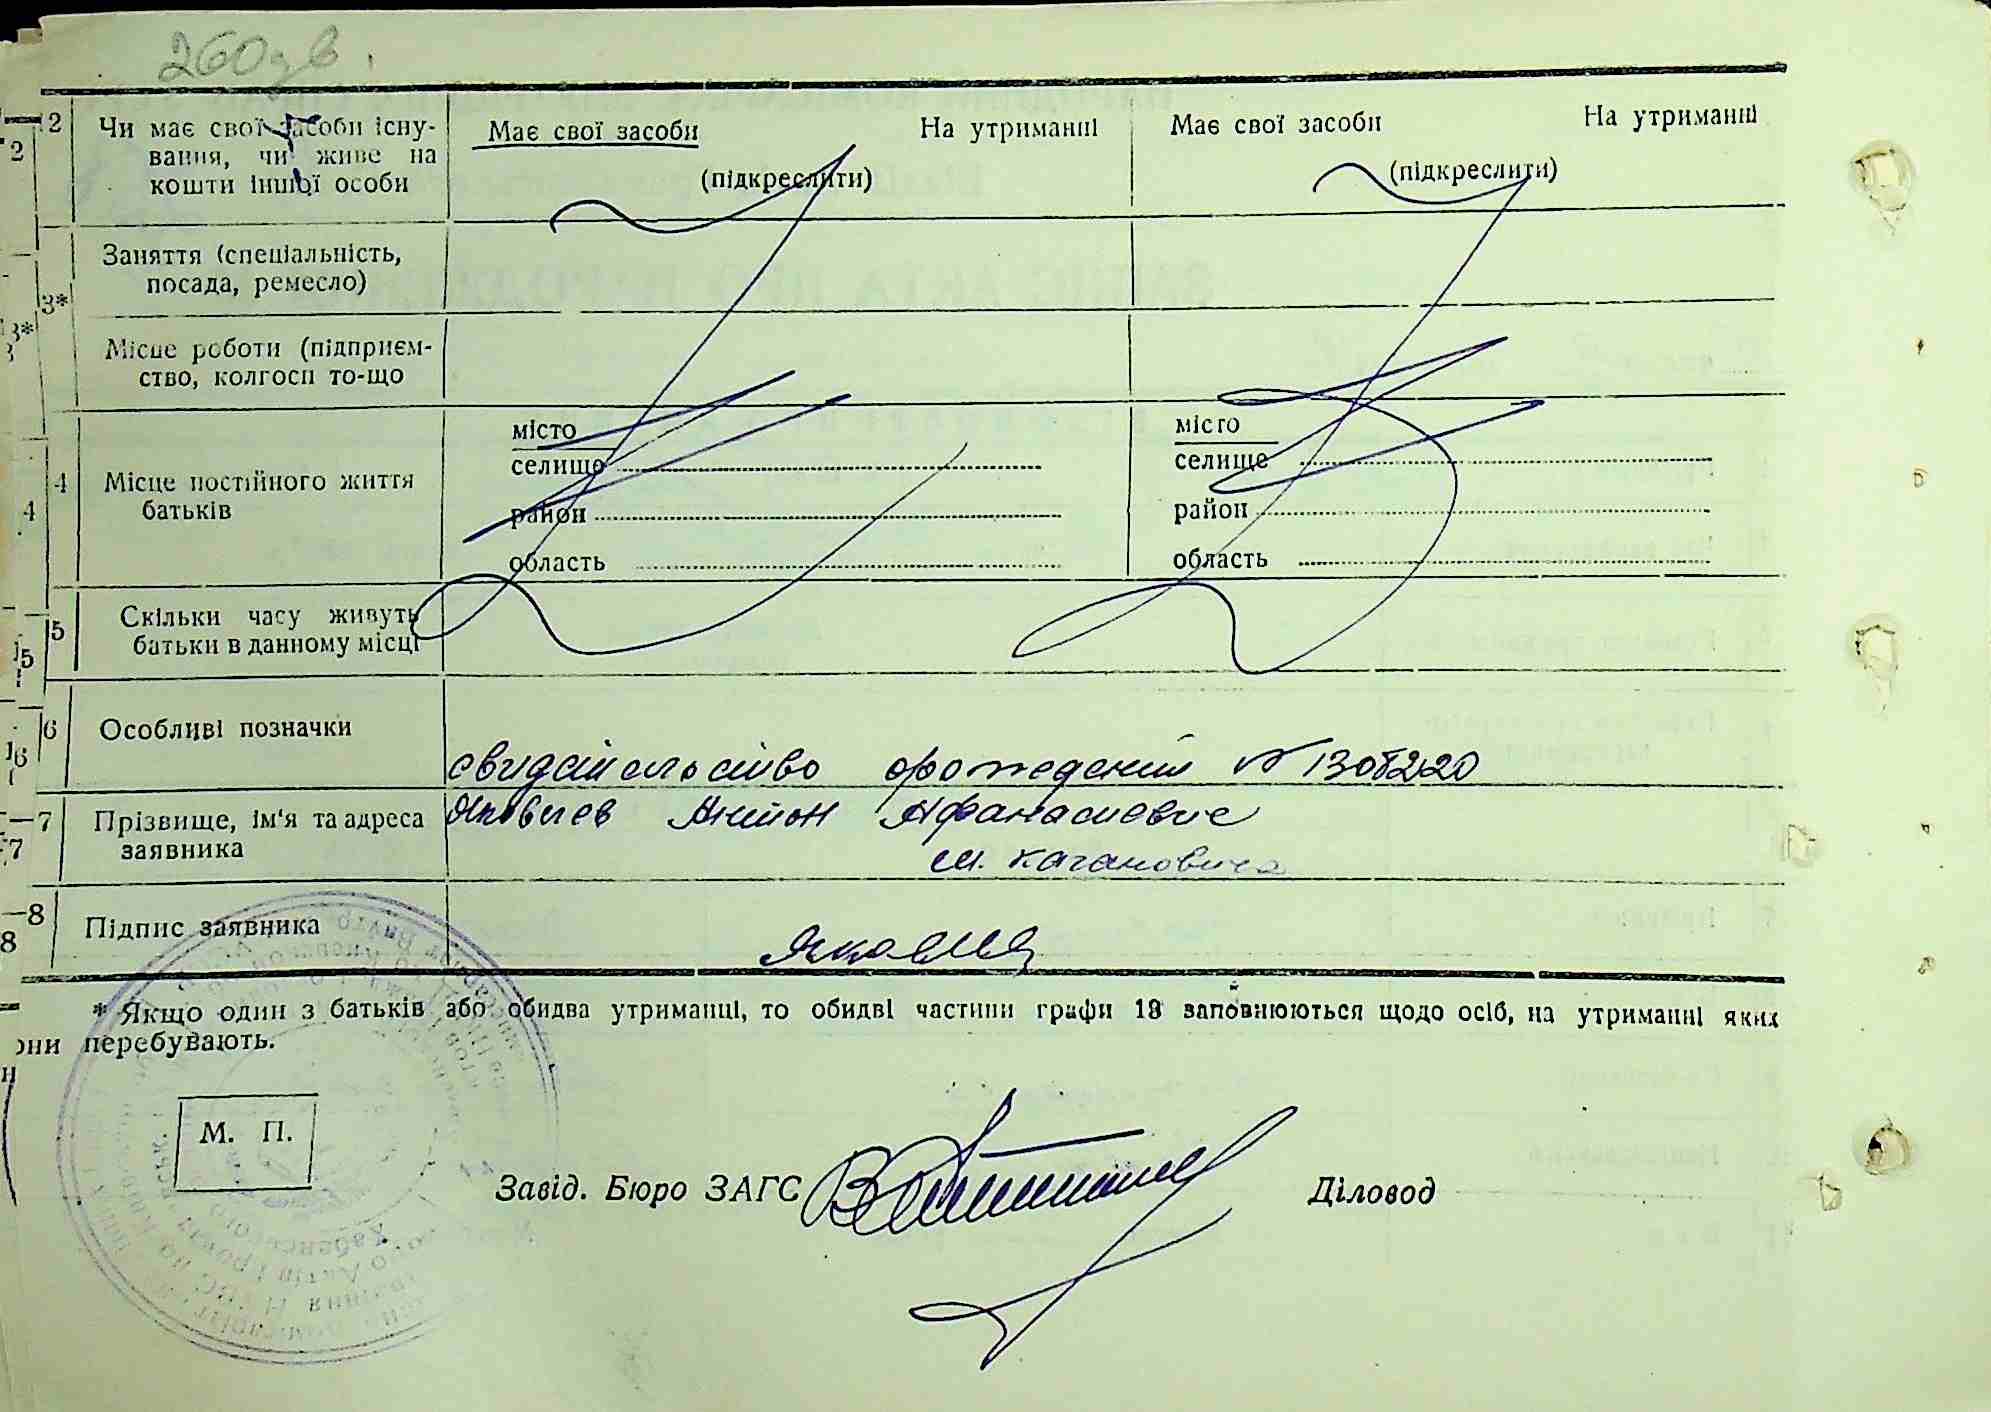 260 зв.
12 Чи має свої засоби існу- Має свої засоби На утриманні Має свої засоби На утриманні
2 вання, чи живе на (підкреслити) (підкреслити)
кошти іншої особи
Заняття (спеціальність,
посада, ремесло)
3*
3* Місце роботи (підприєм-
ство, колгосп то-що
місто місто
селище селище
4 Місце постійного життя
4 батьків район район
область область
5 Скільки часу живуть
15 батьки в данному місці
6 Особливі позначки
16 свидетельство о рождении № 130б220
7 Прізвище, ім'я та адреса Яковлев Антон Афанасиевич
7 заявника м. Кагановича
8 Підпис заявника
8
* Якщо один з батьків або обидва утриманці, то обидві частини графи 13 заповнюються щодо осіб, на утриманні яких
вони перебувають.
М. П.
Завід. Бюро ЗАГС Діловод